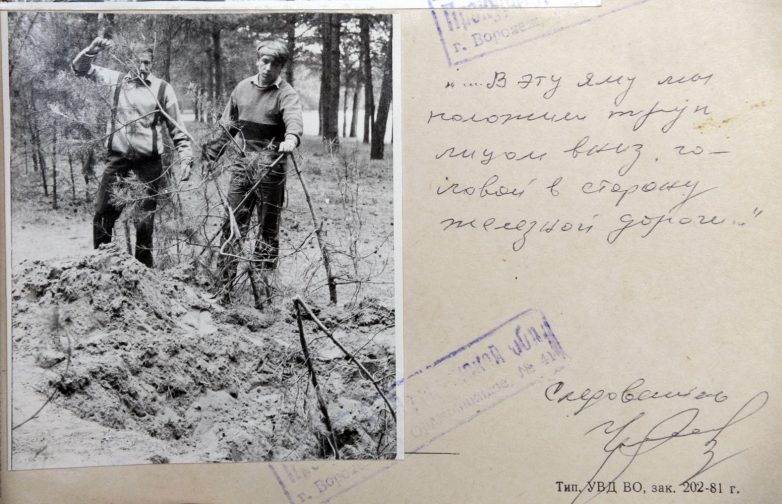 г. Воронеж
"...В эту яму мы
положили труп
лицом вниз, го-
ловой в сторону
железной дороги..."
обл
Следователь
г. Воронеж
Тип. УВД ВО, зак. 202-81 г.